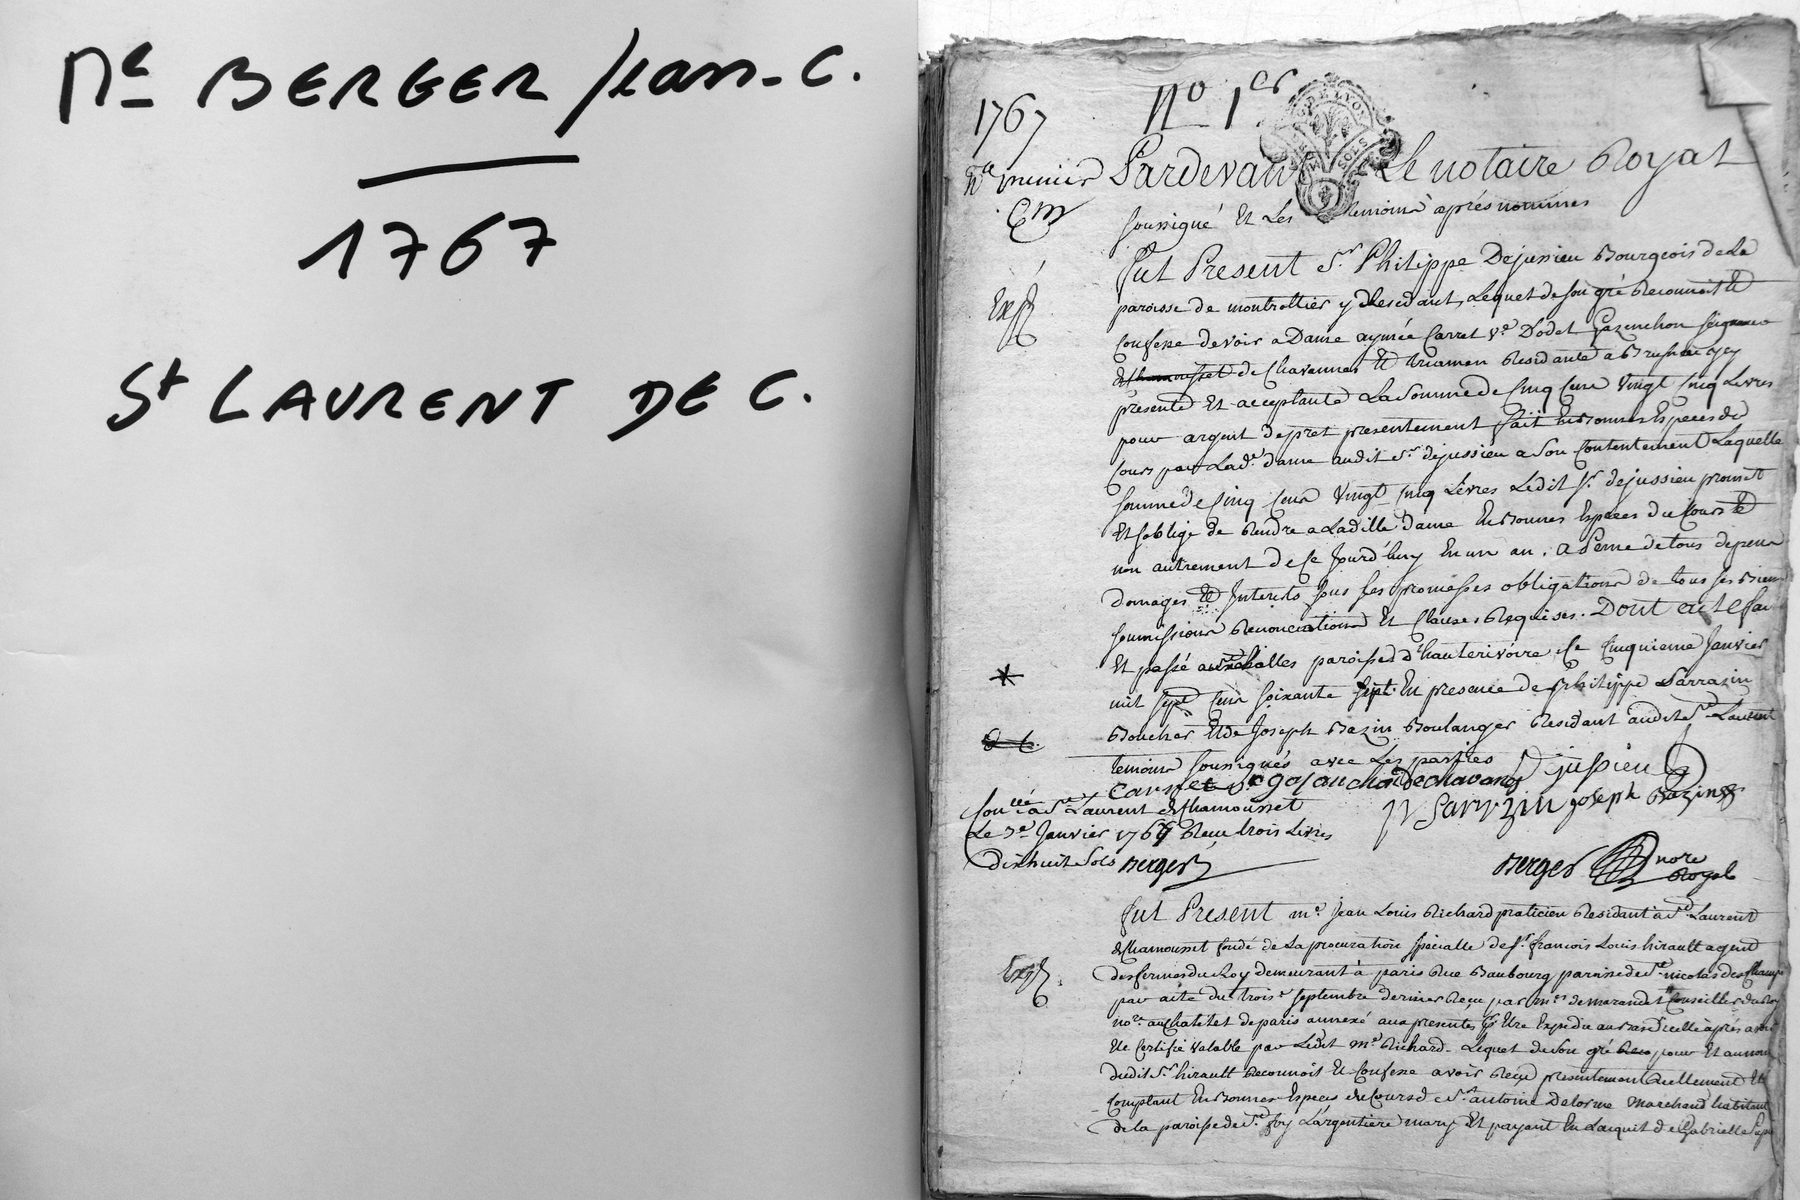 Me BERGER Jean-C.
1767
St LAURENT DE C.
1767
No 1er
Pardevant Le notaire Royal
GEN. DE LYON
SOLS
soussigné Et Les temoins après nommés
fut Present Sr Philippe Dejussieu Bourgeois de La
Exp
paroisse de montrottier y Residant, Lequel de son gré Reconnoit Et
Confesse devoir a Dame aymée Carret ve Dodet
de Chavannes Et Residante a
presente Et acceptante La Somme de Cinq Cent Vingt Cinq Livres
pour argent de pret presentement fait En Bonnes Especes du
Cours par Lade dame audit Sr dejussieu a Son Contentement Laquelle
Somme de Cinq Cent Vingt Cinq Livres Ledit Sr dejussieu promet
Et s'oblige de Rendre a Laditte dame En Bonnes Especes du Cours Et
non autrement de Ce Jourd'huy En un an, a Peine de tous depens
domages Et Interets sous ses promesses obligations de tous ses Biens
soumissions Renonciations Et Clauses Requises. Dont acte fai
Et passé aux halles paroisse d'hauterivoire Ce Cinquieme Janvier
*
mil sept Cent soixante sept En presence de Philippe Sarrazin
Boucher Et de Joseph Bazin Boulanger Residant audit St Laurent
temoins soussignés avec Les parties
Carret dejussieu
P Sarrazin joseph Bazin
Conllé a St Laurent de Chamousset
Le 7e Janvier 1767 Reçu trois Livres
dix huit Sols Berger
Berger nore Royal
fut Present me Jean Louis Richard praticien Residant a St Laurent
de Chamousset fondé de La procuration spécialle de Sr françois Louis hirault agent
Exp
des fermes du Roy demeurant à paris Rue Beaubourg paroisse de St nicolas des Champs
par acte du trois septembre dernier Reçu par mes demarandel Conseiller du Roy
nore au Chatelet de paris annexé aux presentes pr Etre Expedié au bas d'icelle après avoir
Eté Certifié valable par Ledit me Richard. Lequel de Son gré pour Et au nom
dudit Sr hirault Reconnoit Et Confesse avoir Reçu presentement Reellement Et
Comptant En Bonnes Especes du Cours de Sr antoine Delorme marchand habitant
de la paroisse de Ste foy L'argentiere mary Et payant En L'acquit de Gabrielle